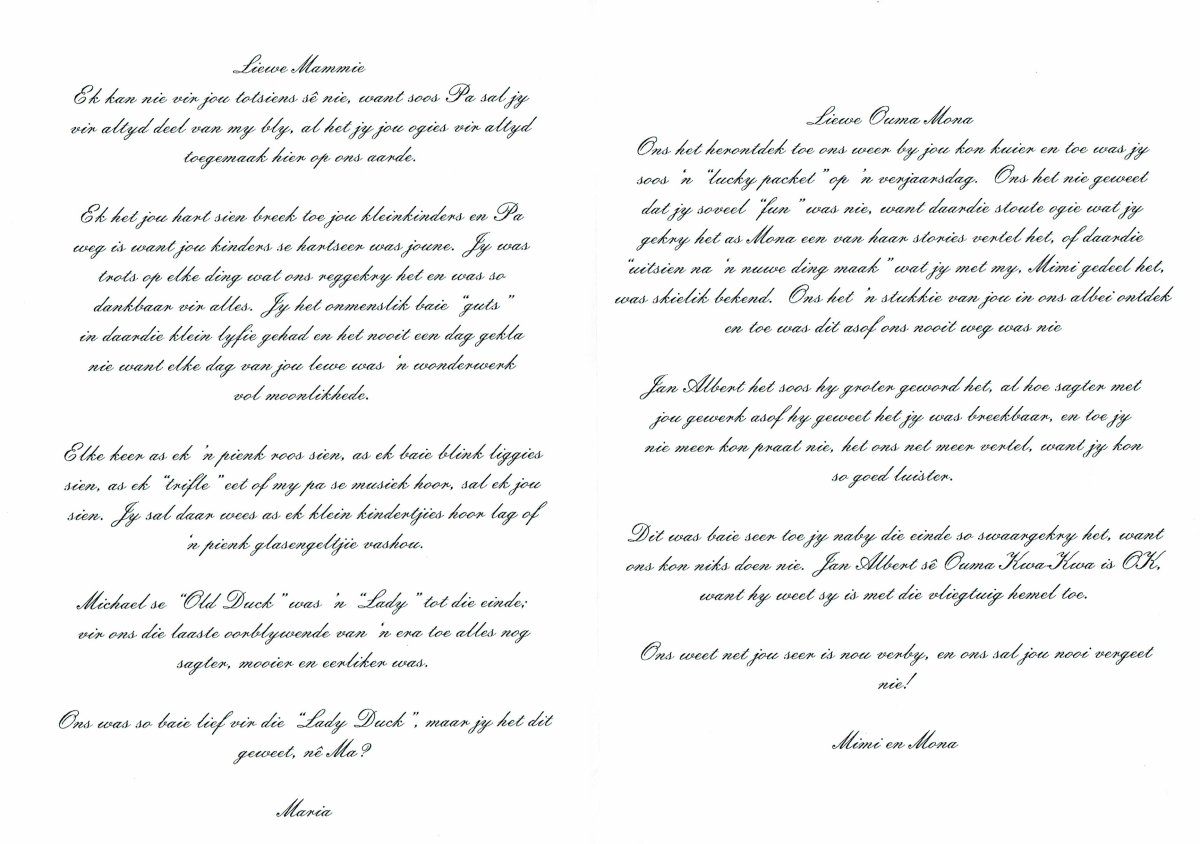 Liewe Mammie
Ek kan nie vir jou totsiens sê nie, want soos Pa sal jy
vir altyd deel van my bly, al het jy jou ogies vir altyd
toegemaak hier op ons aarde.
Ek het jou hart sien breek toe jou kleinkinders en Pa
weg is want jou kinders se hartseer was joune. Jy was
trots op elke ding wat ons reggekry het en was so
dankbaar vir alles. Jy het onmenslik baie "guts"
in daardie klein lyfie gehad en het nooit een dag gekla
nie want elke dag van jou lewe was 'n wonderwerk
vol moonlikhede.
Elke keer as ek 'n pienk roos sien, as ek baie blink liggies
sien, as ek "trifle" eet of my pa se musiek hoor, sal ek jou
sien. Jy sal daar wees as ek klein kindertjies hoor lag of
'n pienk glasengeltjie vashou.
Michael se "Old Duck" was 'n "Lady" tot die einde;
vir ons die laaste oorblywende van 'n era toe alles nog
sagter, mooier en eerliker was.
Ons was so baie lief vir die "Lady Duck", maar jy het dit
geweet, nê Ma?
Maria
Liewe Ouma Mona
Ons het herontdek toe ons weer by jou kon kuier en toe was jy
soos 'n "lucky packet" op 'n verjaarsdag. Ons het nie geweet
dat jy soveel "fun" was nie, want daardie stoute ogie wat jy
gekry het as Mona een van haar stories vertel het, of daardie
"uitsien na 'n nuwe ding maak" wat jy met my, Mimi gedeel het,
was skielik bekend. Ons het 'n stukkie van jou in ons albei ontdek
en toe was dit asof ons nooit weg was nie
Jan Albert het soos hy groter geword het, al hoe sagter met
jou gewerk asof hy geweet het jy was breekbaar, en toe jy
nie meer kon praat nie, het ons net meer vertel, want jy kon
so goed luister.
Dit was baie seer toe jy naby die einde so swaargekry het, want
ons kon niks doen nie. Jan Albert sê Ouma Kwa-Kwa is OK,
want hy weet sy is met die vliegtuig hemel toe.
Ons weet net jou seer is nou verby, en ons sal jou nooi vergeet
nie!
Mimi en Mona